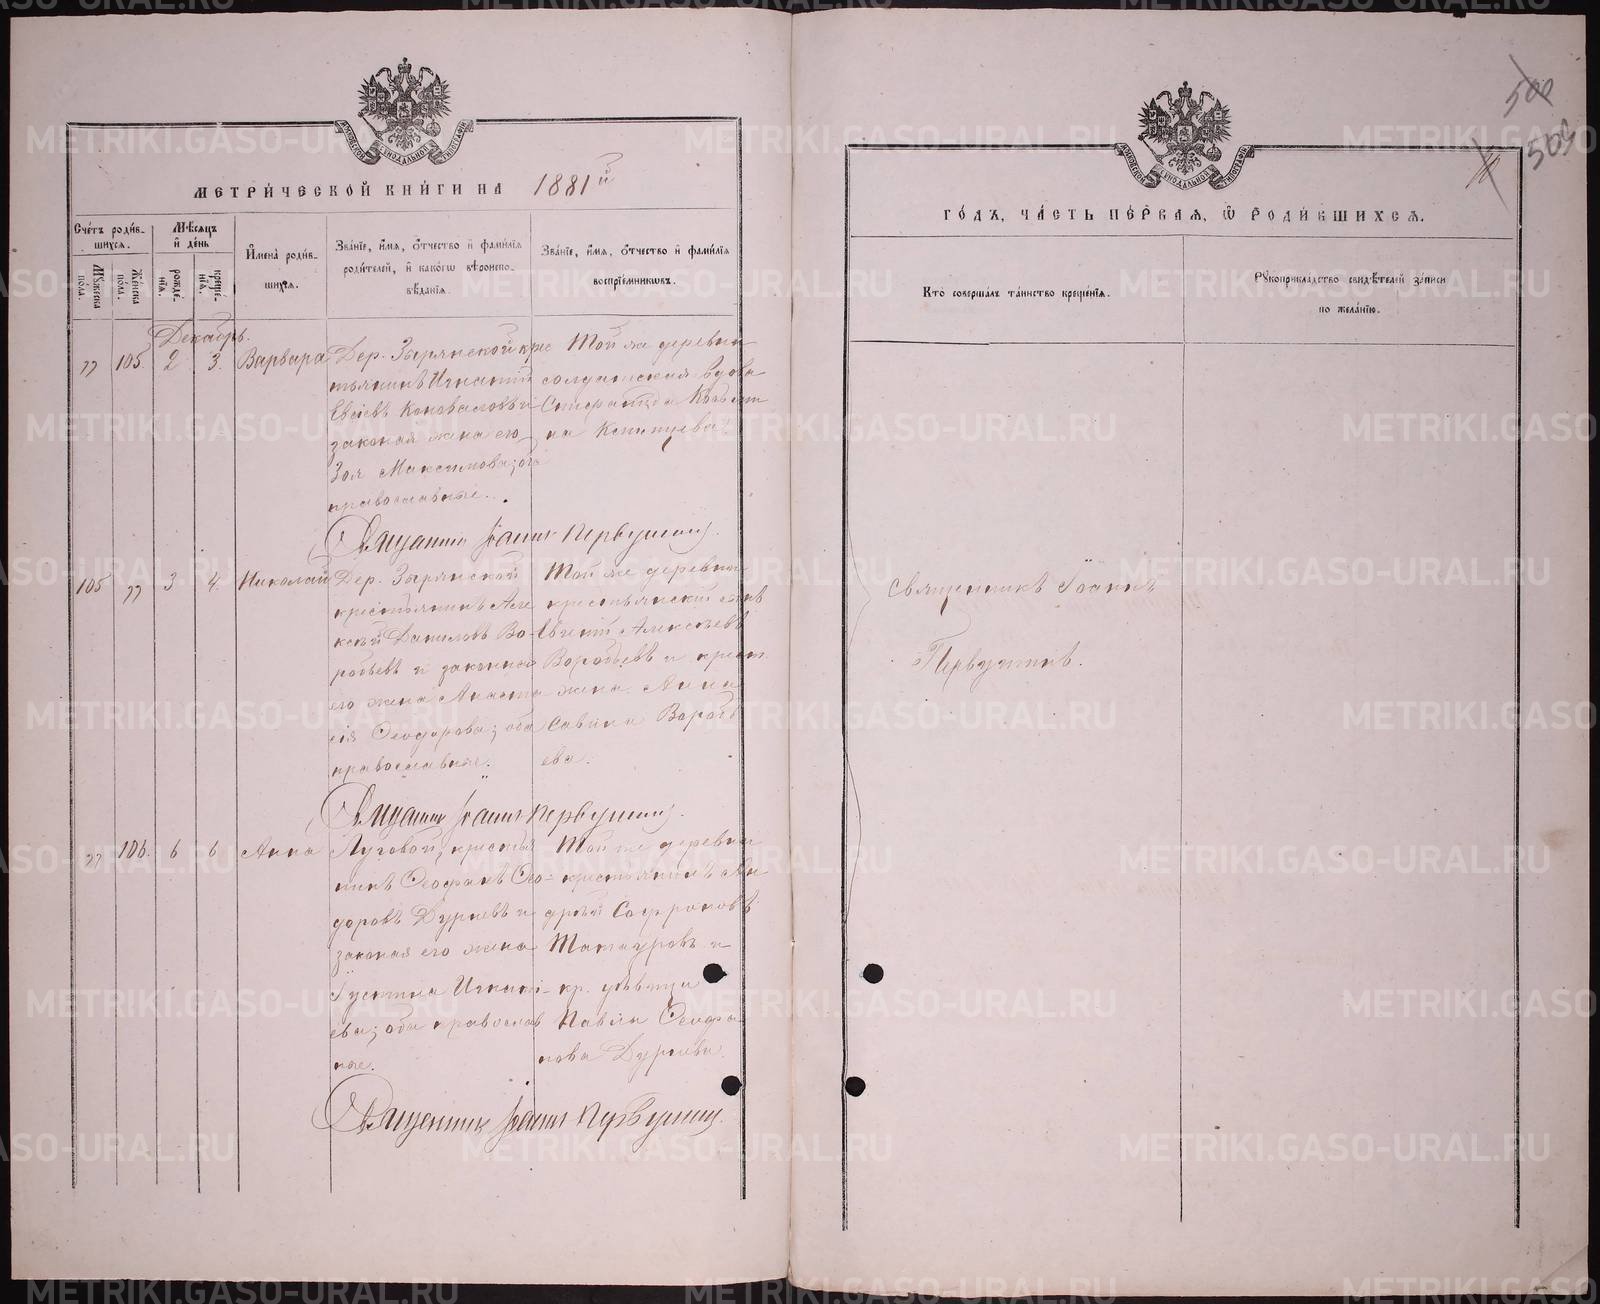 МЕТРИ́ЧЕСКОЙ КНИ́ГИ НА 1881й
Сче́тъ роди́в-
шихся.
Мѣ́сяцъ
и҆ де́нь
Мꙋ́жеска
по́ла.
Же́нска
по́ла.
рожде́-
нїя.
креще́-
нїя.
И҆мена̀ роди́в-
шихся.
Зва́нїе, и҆́мя, ѻ҆́тчество и҆ фами́лїя
роди́телей, и҆ како́гѡ вѣроиспо-
вѣ́данїя.
Зва́нїе, и҆́мя, ѻ҆́тчество и҆ фами́лїя
воспрїе́мниковъ.
Декабрь.
" 105. 2 3. Варвара
Дер. Зырянской крес
тьянинъ Игнатій
Евсіевъ Коноваловъ и
законая жена его
Зоя Максимова; оба
православные.
Той же деревни
солдатская вдова
Священникъ Іоаннъ Первушинъ
105 " 3 4. Николай
Дер. Зырянской
крестьянинъ Але
ксѣй Даниловъ Во-
робьевъ и законная
его жена Анаста
сія Ѳеодорова; оба
православные.
Той же деревни
крестьянскій сынъ
Евгеній Алексѣевъ
Воробьевъ и крест.
жена Анна
Савина Воробь
ева.
Священникъ Іоаннъ Первушинъ.
" 106. 6 6 Анна
Луговой, крестья
нинъ Ѳеофанъ Ѳео-
доровъ Дурневъ и
законая его жена
Іустина Игнатi-
ева; оба православ
ные.
Той же деревни
крестьянинъ Ан
дрей Софроновъ
Татауровъ и
кр. дѣвица
Павла Ѳеофа
нова Дурнева.
Священникъ Іоаннъ Первушинъ.
500
503
ГО́ДЪ, ЧА́СТЬ ПЕ́РВАЯ, Ѡ҆ РОДИ́ВШИХСЯ.
Кто̀ соверша́лъ та́инство креще́нїя.
Рꙋкоприкла́дство свидѣ́телей за́писи
по жела́нїю.
Священникъ Іоаннъ
Первушинъ.